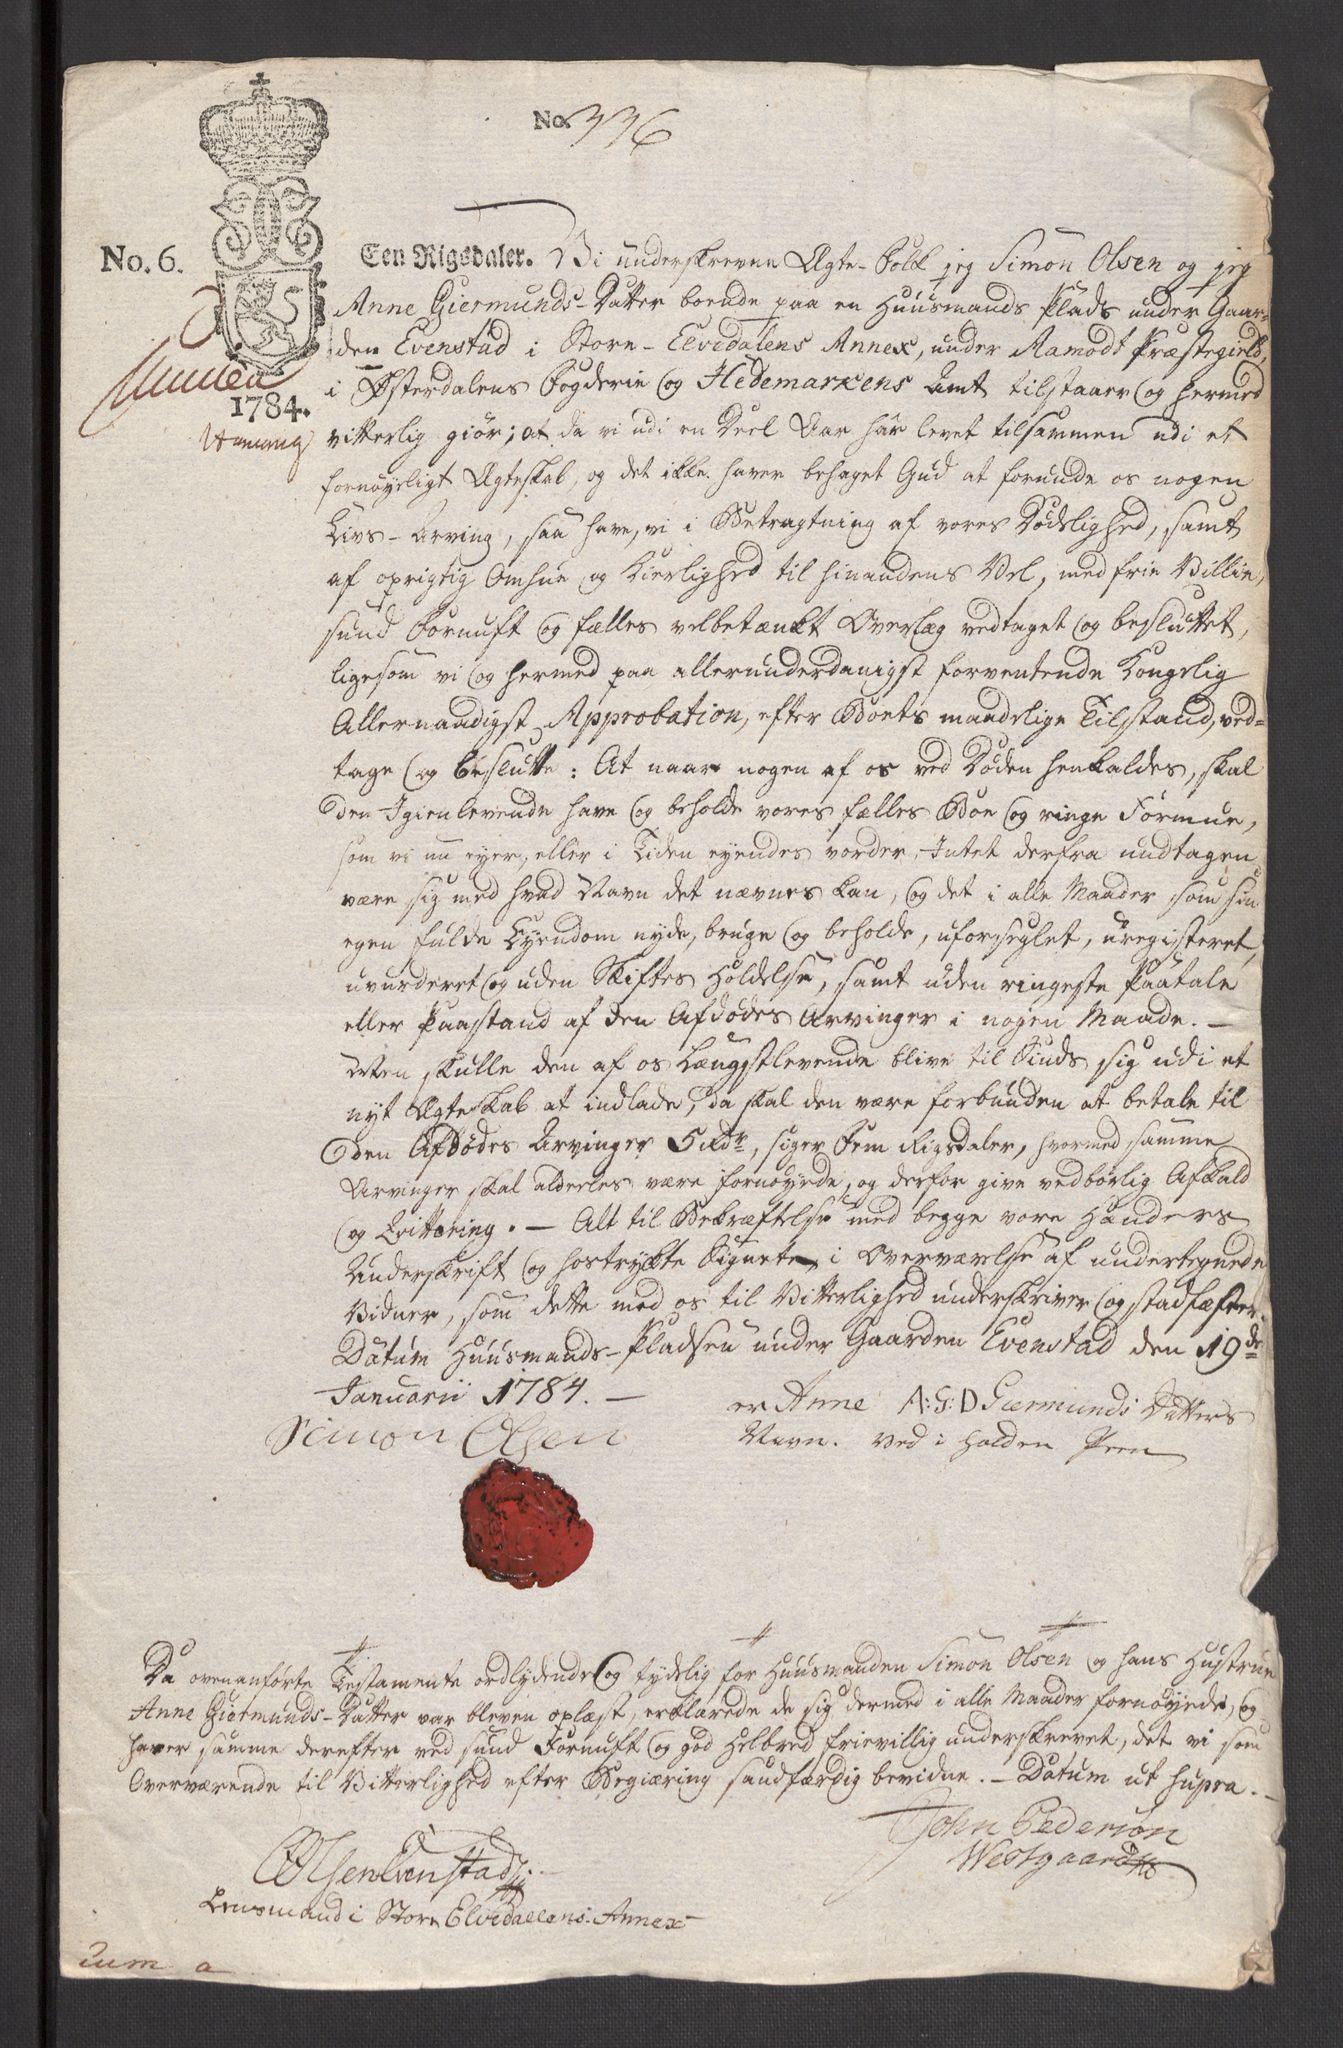 No. 336
No. 6.
1784.
Een Rigsdaler. Vi underskrevne Ægte-Folk jeg Simon Olsen og jeg
Anne Giermunds-Datter boende paa en Huusmands Plads under Gaar-
den Evenstad i Storn-Elvedalens Annex, under Aamodt Præstegield,
i Østerdalens Fogderie og Hedemarkens Amt tilstaar og hermed
vitterlig giør; at da vi udi en Deel Aar har levet tilsammen udi et
fornøyeligt Ægteskab, og det ikke haver behaget Gud at forunde os nogen
Livs-Arving, saa have, vi i Betragtning af vores Dødelighed, samt
af oprigtig Omhue og Kierlighed til hinandens Vel, med frie Villie,
sund Fornuft og fælles velbetænkt Overlæg vedtaget og besluttet,
ligesom vi og hermed paa allerunderdanigst forventende Kongelig
Allernaadigst Approbation, efter Boets maadelige Tilstand, ved-
tage og beslutte: At naar nogen af os ved Døden henkaldes, skal
den Igienlevende have og beholde vores fælles Boe og ringe Formue,
som vi nu eyer, eller i Tiden eyendes vorder, Intet derfra undtagen
være sig med hvad Navn det nævnes kan, og det i alle Maader som sin
egen fulde Eyendom nyde, bruge og beholde, uforseglet, uregisteret,
uvurderet og uden Skiftes Holdelse, samt uden ringeste Paatale
eller Paastand af den Afdødes Arvinger i nogen Maade. -
Men skulle den af os Længstlevende blive til Sinds sig udi et
nyt Ægteskab at indlade, da skal den være forbunden at betale til
den Afdødes Arvinger 5 Rdr, siger Fem Rigsdaler, hvormed samme
Arvinger skal aldeeles være fornøyede, og derfor give vedbørlig Afkald
og Qvittering. - Alt til Bekræftelse med begge vore Hænders
Underskrift og hostrykte Signete, i Overværelse af undertegnede
Vidner, som dette med os til Vitterlighed underskriver og stadfæster.
Datum Huusmands-Pladsen under Gaarden Evenstad den 19de
Januarii 1784. -
Simon Olsen
er Anne A:G:D Giermunds Datters
Navn. ved i holden Peen
Da ovenanførte Testamente ordlydende og tydelig for Huusmanden Simon Olsen og hans Hustrue
Anne Giermunds-Datter var bleven oplæst, erklærede de sig dermed i alle Maader fornøyede, og
haver samme derefter ved sund Fornuft og god Helbred frievillig underskrevet, det vi som
Overværende til Vitterlighed efter Begiæring sandfærdig bevidne. - Datum ut supra. -
Olsen Evenstad
Lensmand i Storn Elvedalens Annex
John Pedersøn
Westgaard